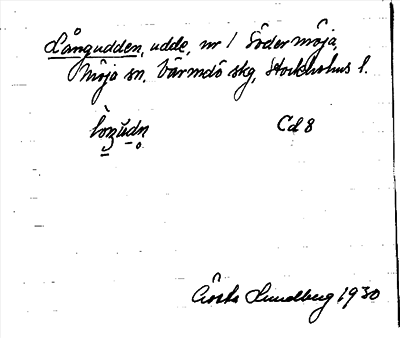 Långudden, udde, nr 1 Södermöja,
Möja sn, Värmdö skg, Stockholms l.
Cd 8
Gösta Lundberg 1930